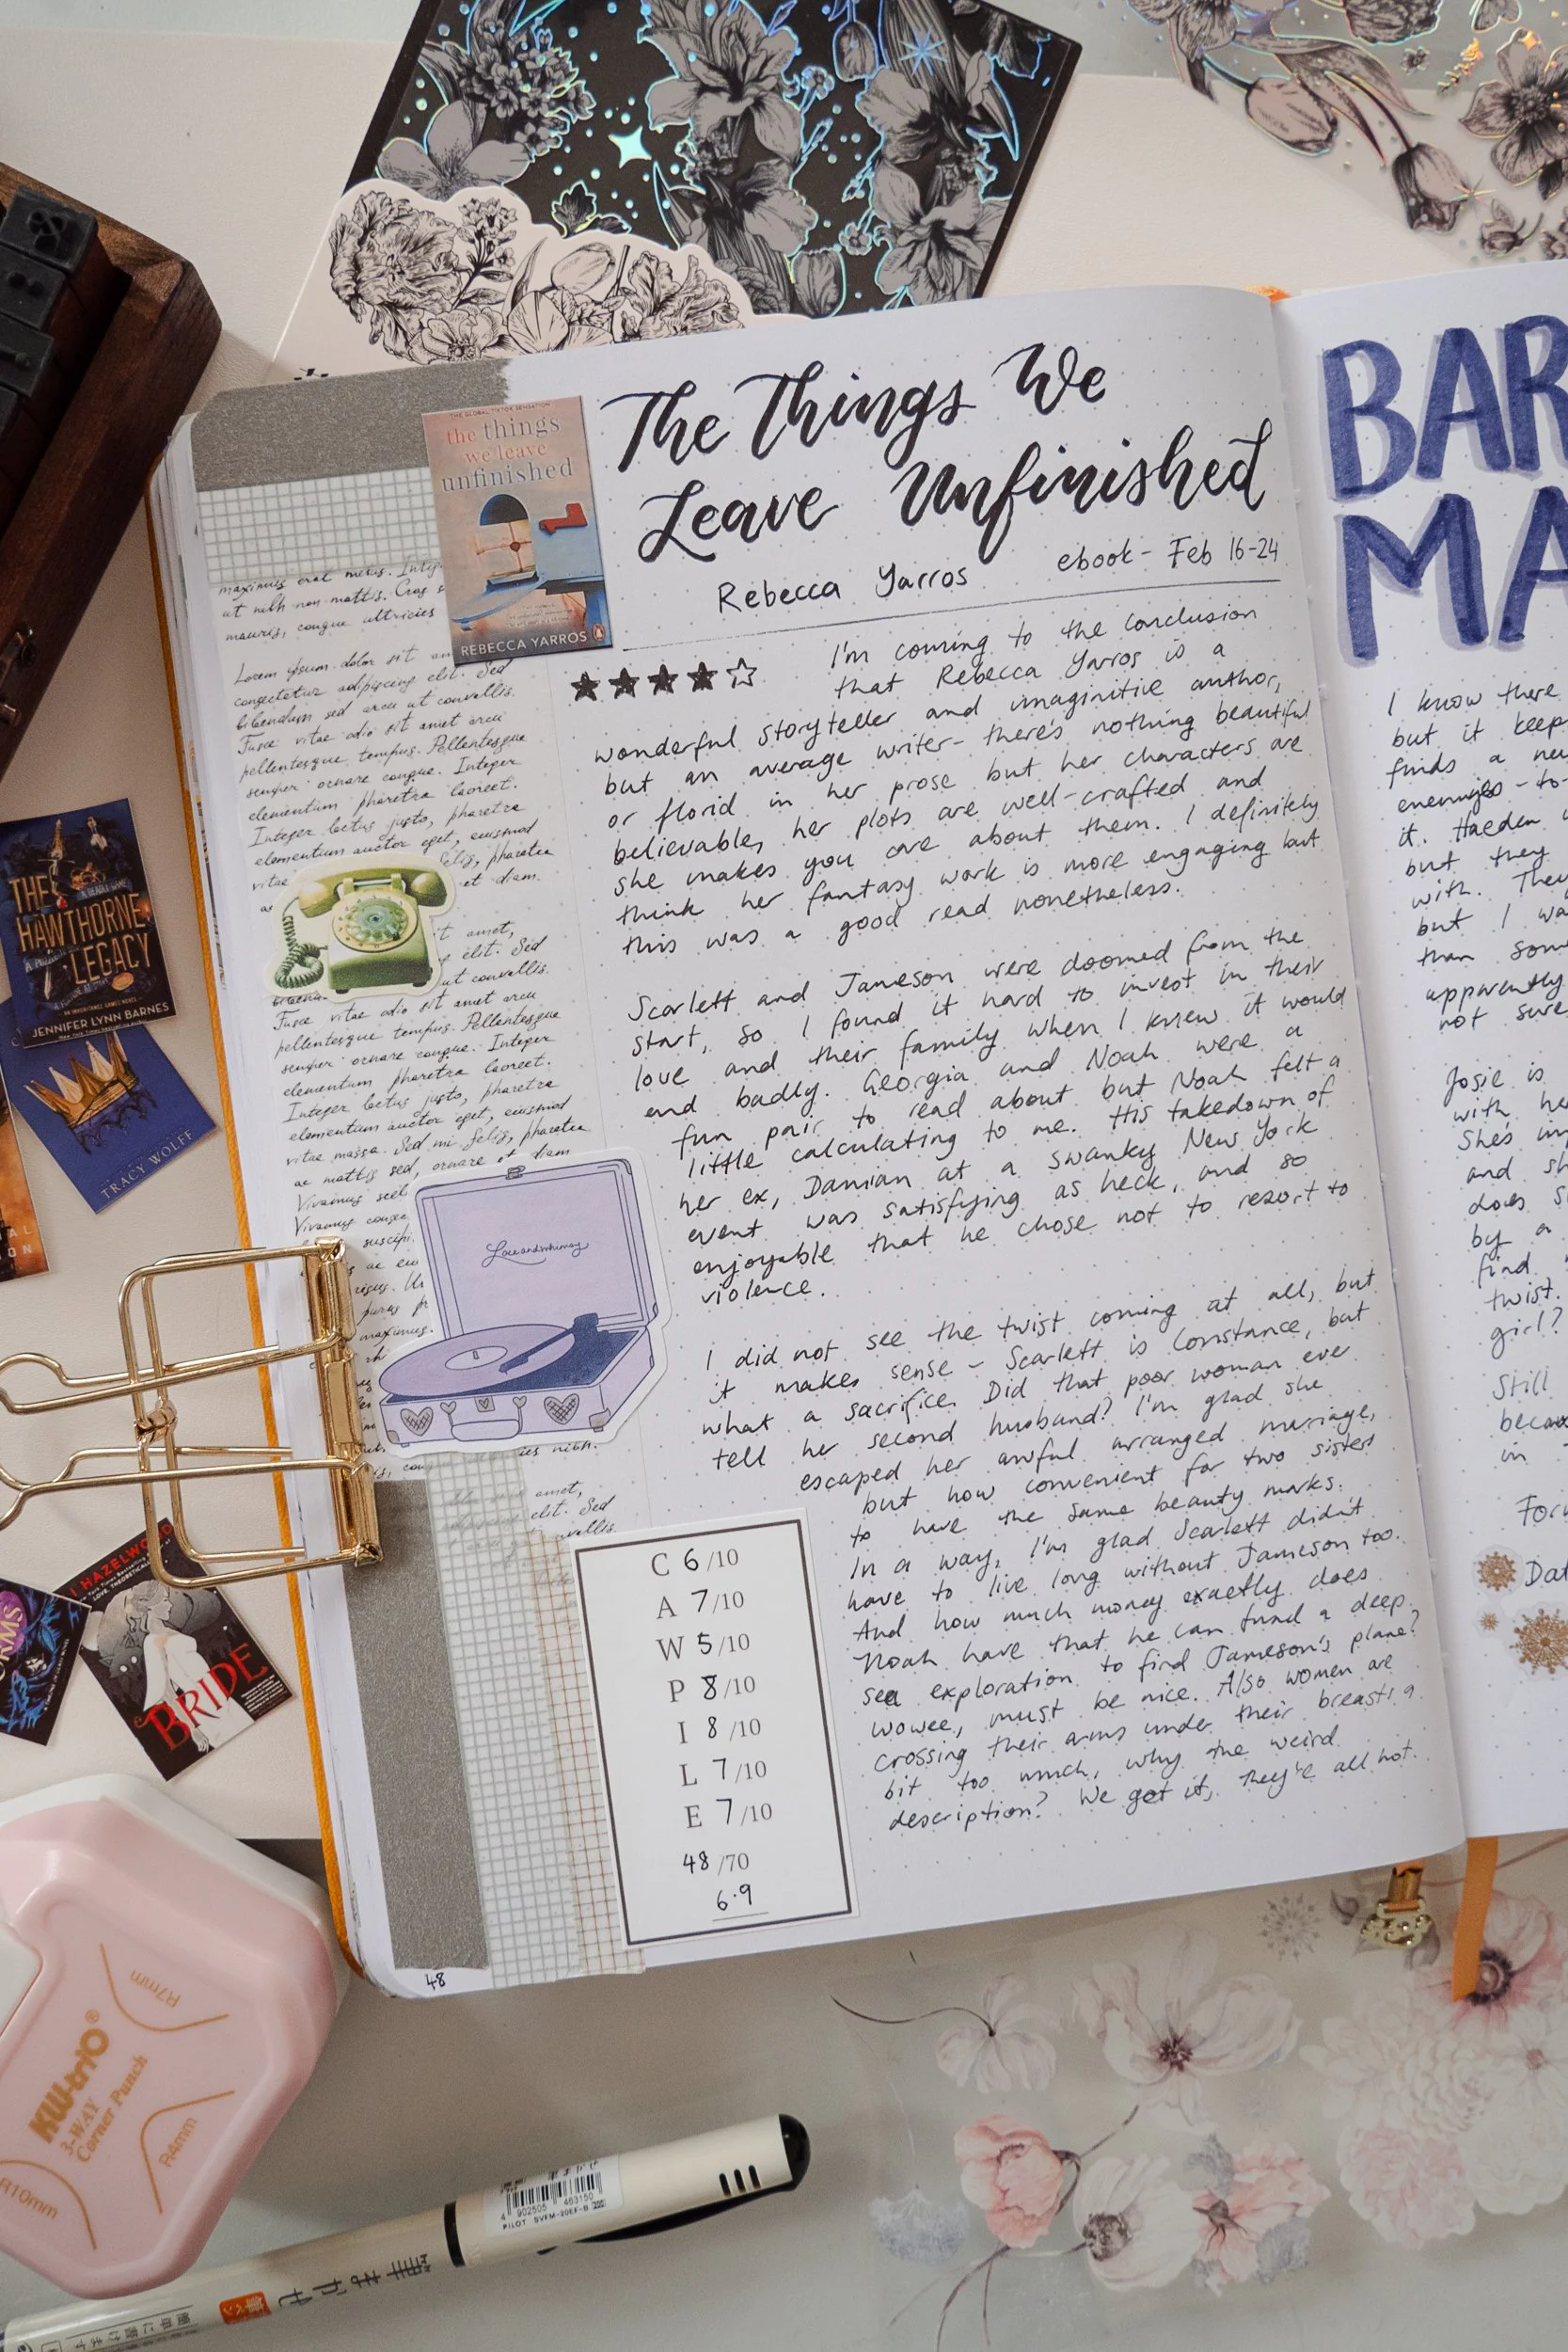 The Things We
Leave Unfinished
Rebecca Yarros
ebook - Feb 16-24
THE GLOBAL TIKTOK SENSATION
the things
we leave
unfinished
REBECCA YARROS
I'm coming to the conclusion
that Rebecca Yarros is a
wonderful storyteller and imaginitive author,
but an average writer - there's nothing beautiful
or florid in her prose but her characters are
believable, her plots are well-crafted and
she makes you care about them. I definitely
think her fantasy work is more engaging but
this was a good read nonetheless.
Scarlett and Jameson were doomed from the
start, so I found it hard to invest in their
love and their family when I knew it would
end badly. Georgia and Noah were a
fun pair to read about but Noah felt a
little calculating to me. His takedown of
her ex, Damian at a swanky New York
event was satisfying as heck, and so
enjoyable that he chose not to resort to
violence.
I did not see the twist coming at all, but
it makes sense - Scarlett is Constance, but
what a sacrifice. Did that poor woman ever
tell her second husband? I'm glad she
escaped her awful arranged marriage,
but how convenient for two sisters
to have the same beauty marks.
In a way, I'm glad Scarlett didn't
have to live long without Jameson too.
And how much money exactly does
Noah have that he can fund a deep
sea exploration to find Jameson's plane?
Wowee, must be nice. Also women are
crossing their arms under their breasts a
bit too much, why the weird
description? We get it, they're all hot.
C 6/10
A 7/10
W 5/10
P 8/10
I 8/10
L 7/10
E 7/10
48/70
6.9
48
maximus erat metus. Integ
at nibh non mattis. Cras s
mauris, congue ultricies
Lorem ipsum dolor sit am
consectetur adipiscing elit. Sed
bibendum sed arcu ut convallis.
Fusce vitae odio sit amet arcu
pellentesque tempus. Pellentesque
semper ornare congue. Integer
elementum pharetra laoreet.
Integer lectus justo, pharetra
elementum auctor eget, euismod
vitae
felis, pharetra
et diam.
it amet,
elit. Sed
ut convallis.
Fusce vitae odio sit amet arcu
pellentesque tempus. Pellentesque
semper ornare congue. Integer
elementum pharetra laoreet.
Integer lectus justo, pharetra
elementum auctor eget, euismod
vitae massa. Sed mi felis, pharetra
ac mattis sed, ornare et diam
Vivamus
Vivamus
amet,
elit. Sed
Love and whimsy
BAR
MA
I know there
but it keep
finds a ne
enemies-to-
it. Haeden
but they
with. They
but I wa
than som
apparently
not sure
Josie is
with he
She's in
and sh
does s
by a
find
twist.
girl?
Still
becau
in
For
Dat
THE
HAWTHORNE
LEGACY
A DEADLY GAME
AN INHERITANCE GAMES NOVEL
JENNIFER LYNN BARNES
TRACY WOLFF
HAZELWOOD
BRIDE
KW-triO®
3-WAY
Corner Punch
R7mm
R4mm
R10mm
4 902505 463150
PILOT SVFM-20EF-B
筆まかせ
筆ペン